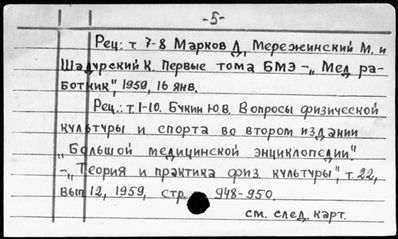 -5-
Рец: т 7-8 Марков Д, Мережинский М. и
Шадурский К. Первые тома БМЭ -„ Мед ра-
ботник", 1959, 16 янв.
Рец.: т. 1-10. Букин Ю.В. Вопросы физической
культуры и спорта во втором издании
„Большой медицинской энциклопедии".
-„Теория и практика физ. культуры", т. 22,
вып 12, 1959, стр. 948-950.
см. след. карт.